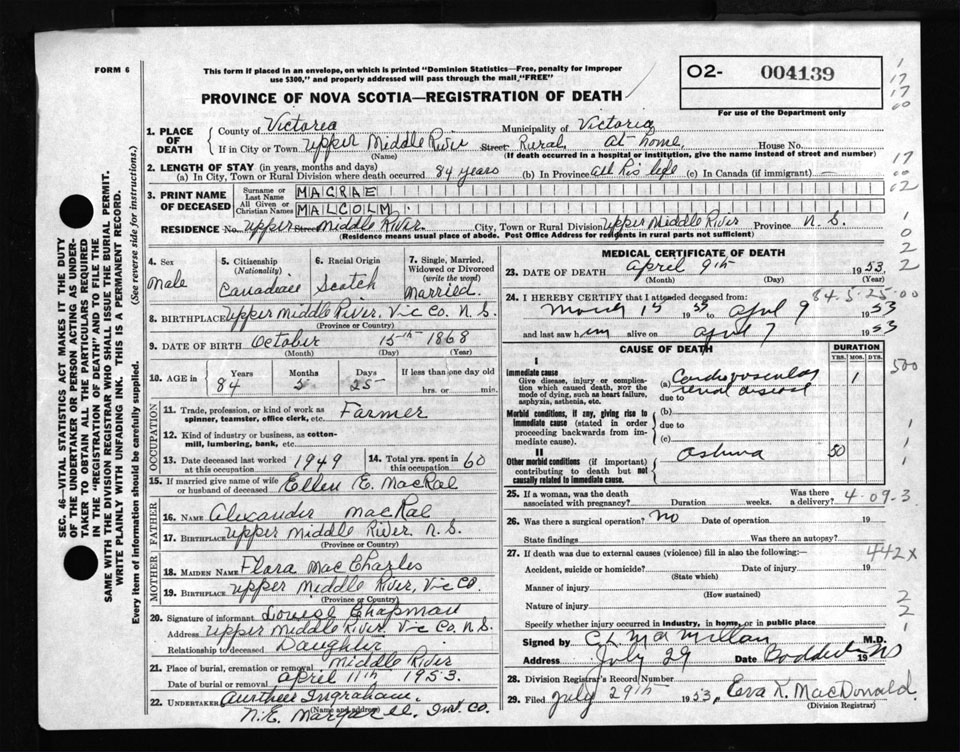 FORM 6
This form if placed in an envelope, on which is printed "Dominion Statistics—Free, penalty for improper
use $300," and properly addressed will pass through the mail "FREE"
PROVINCE OF NOVA SCOTIA—REGISTRATION OF DEATH
O2- 004139
For use of the Department only
SEC. 46—VITAL STATISTICS ACT MAKES IT THE DUTY
OF THE UNDERTAKER OR PERSON ACTING AS UNDER-
TAKER TO OBTAIN ALL THE PARTICULARS REQUIRED
IN THE "REGISTRATION OF DEATH" AND TO FILE THE
SAME WITH THE DIVISION REGISTRAR WHO SHALL ISSUE THE BURIAL PERMIT.
WRITE PLAINLY WITH UNFADING INK. THIS IS A PERMANENT RECORD.
Every item of information should be carefully supplied. (See reverse side for instructions.)
1. PLACE OF DEATH County of Victoria Municipality of Victoria
If in City or Town Upper Middle River Street Rural at home, House No.
(Name) (If death occurred in a hospital or institution, give the name instead of street and number)
2. LENGTH OF STAY (in years, months and days)
(a) In City, Town or Rural Division where death occurred 84 years (b) In Province all his life (c) In Canada (if immigrant) —
3. PRINT NAME OF DECEASED Surname or Last Name MACRAE
All Given or Christian Names MALCOLM.
RESIDENCE No. Upper Street Middle River. City, Town or Rural Division Upper Middle River Province N. S.
(Residence means usual place of abode. Post Office Address for residents in rural parts not sufficient)
4. Sex male
5. Citizenship (Nationality) Canadian
6. Racial Origin Scotch
7. Single, Married, Widowed or Divorced (write the word) Married.
8. BIRTHPLACE Upper Middle River, Vic Co. N. S.
(Province or Country)
9. DATE OF BIRTH October 15th 1868
(Month) (Day) (Year)
10. AGE in Years 84 Months 5 Days 25 If less than one day old hrs. or min.
OCCUPATION
11. Trade, profession, or kind of work as spinner, teamster, office clerk, etc. Farmer
12. Kind of industry or business, as cotton-mill, lumbering, bank, etc.
13. Date deceased last worked at this occupation 1949 14. Total yrs. spent in this occupation 60
15. If married give name of wife or husband of deceased Ellen E. MacRae
FATHER
16. NAME Alexander MacRae
17. BIRTHPLACE Upper Middle River N. S.
(Province or Country)
MOTHER
18. MAIDEN NAME Flora MacCharles
19. BIRTHPLACE Upper Middle River, Vic Co.
(Province or Country)
20. Signature of informant Louise Chapman
Address Upper Middle River Vic Co. N. S.
Relationship to deceased Daughter
21. Place of burial, cremation or removal Middle River
Date of burial or removal April 11th 1953.
22. UNDERTAKER Ingraham.
(Name and address) N. E. Margaree. Inv. Co.
MEDICAL CERTIFICATE OF DEATH
23. DATE OF DEATH April 9th 1953
(Month) (Day) (Year)
84-5-25-00
24. I HEREBY CERTIFY that I attended deceased from:
March 15 1953 to April 9 1953
and last saw him alive on April 7 1953
CAUSE OF DEATH
DURATION
YRS. MOS. DYS.
I
Immediate cause
Give disease, injury or complication which caused death, NOT the mode of dying, such as heart failure, asphyxia, asthenia, etc.
(a) Cardiovascular renal disease 1
due to
Morbid conditions, if any, giving rise to immediate cause (stated in order proceeding backwards from immediate cause).
(b)
due to
(c)
II
Other morbid conditions (if important) contributing to death but not causally related to immediate cause.
Asthma 50
25. If a woman, was the death associated with pregnancy? Duration weeks. Was there a delivery?
4-09-3
26. Was there a surgical operation? No Date of operation 19
State findings Was there an autopsy?
27. If death was due to external causes (violence) fill in also the following:—
442x
Accident, suicide or homicide? Date of injury 19
(State which)
Manner of injury
(How sustained)
Nature of injury
Specify whether injury occurred in industry, in home, or in public place
Signed by C L MacMillan M.D.
Address July 29 Date Baddeck 19
28. Division Registrar's Record Number
29. Filed July 29th 1953, Eva K. MacDonald.
(Division Registrar)